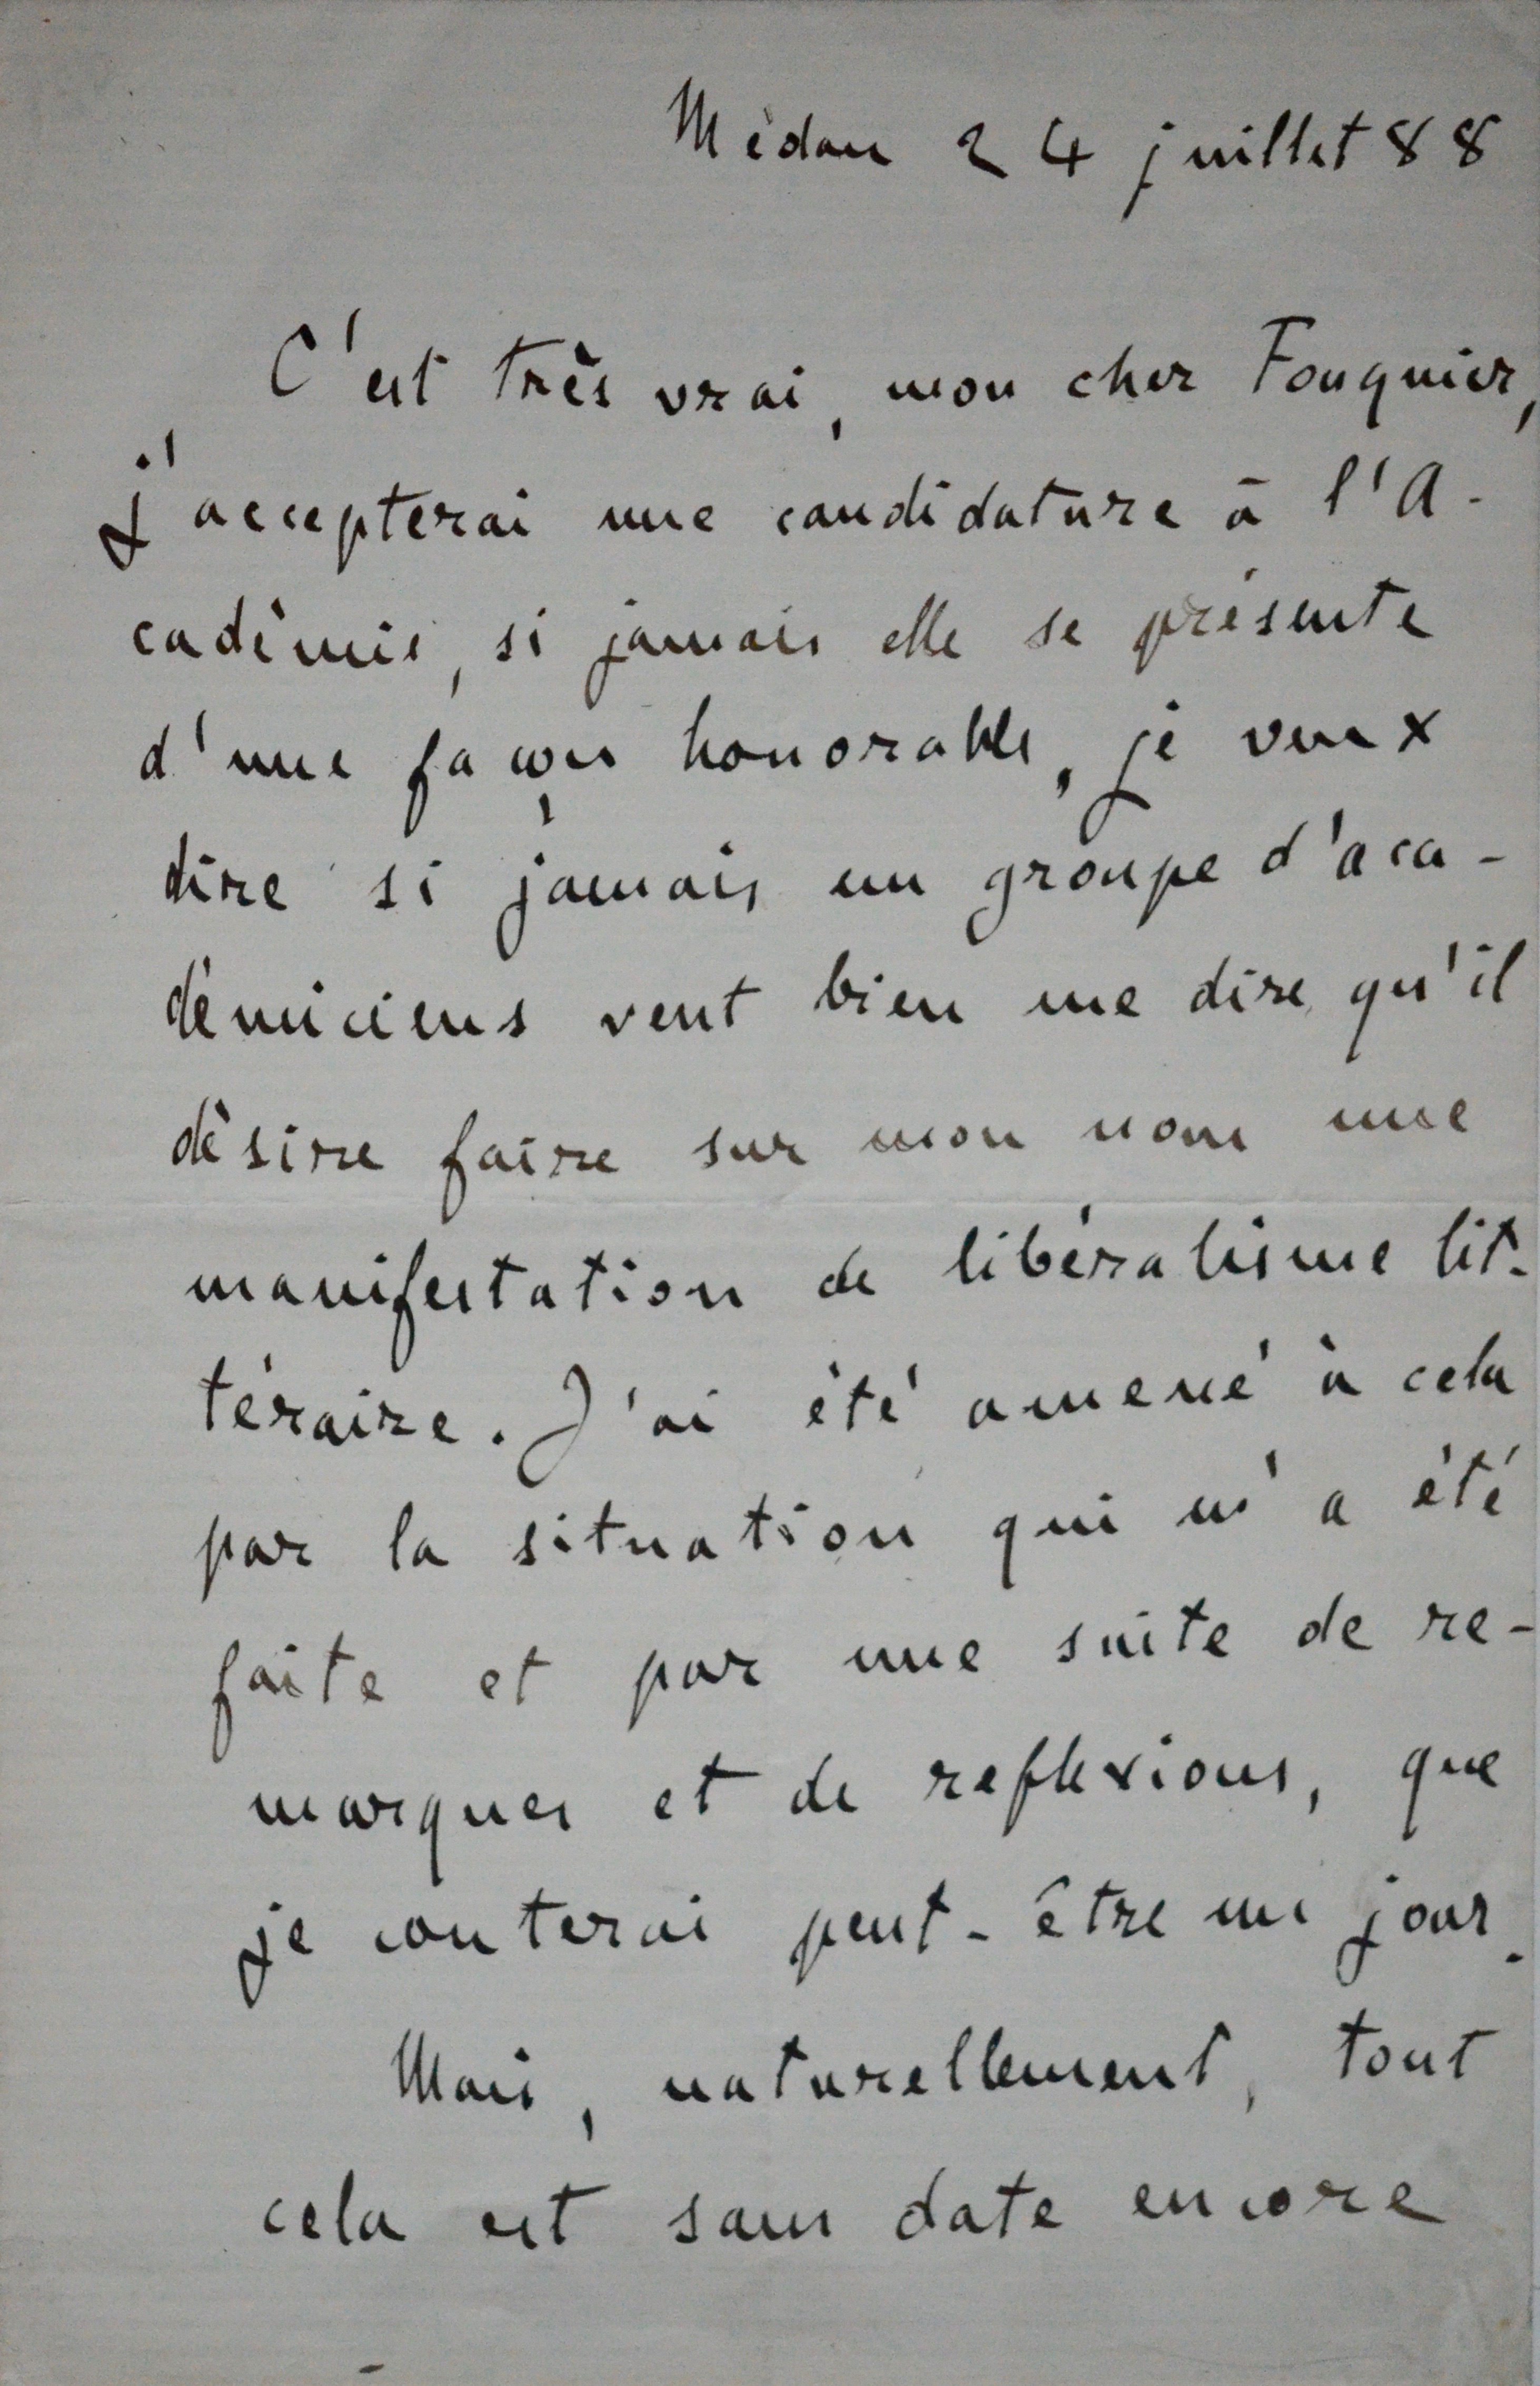 Médan 24 juillet 88
C'est très vrai, mon cher Fouquier,
j'accepterai une candidature à l'A-
cadémie, si jamais elle se présente
d'une façon honorable, je veux
dire si jamais un groupe d'aca-
démiciens veut bien me dire qu'il
désire faire sur mon nom une
manifestation de libéralisme lit-
téraire. J'ai été amené à cela
par la situation qui m'a été
faite et par une suite de re-
marques et de reflexions, que
je conterai peut-être un jour.
Mais, naturellement, tout
cela est sans date encore